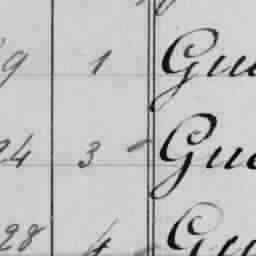 9 1 Gu
24 3 Gu
28 4 Gu